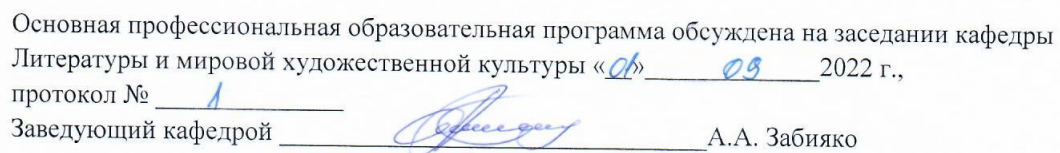 Основная профессиональная образовательная программа обсуждена на заседании кафедры
Литературы и мировой художественной культуры «01» 09 2022 г.,
протокол № 1
Заведующий кафедрой А.А. Забияко